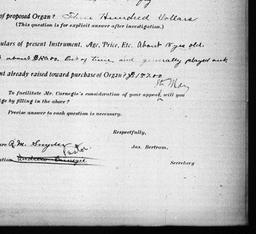 of proposed Organ? Nine Hundred Dollars
(This is for explicit answer after investigation.)
culars of present Instrument, Age, Price, Etc. About 15 yrs old.
about $1200. Out of tune and generally played out
nt already raised toward purchase of Organ?
To facilitate Mr. Carnegie's consideration of your appeal, will you
ge by filling in the above?
Precise answer to each question is necessary.
Respectfully,
R. M. Snyder
Pastor
Jas. Bertram,
Secretary